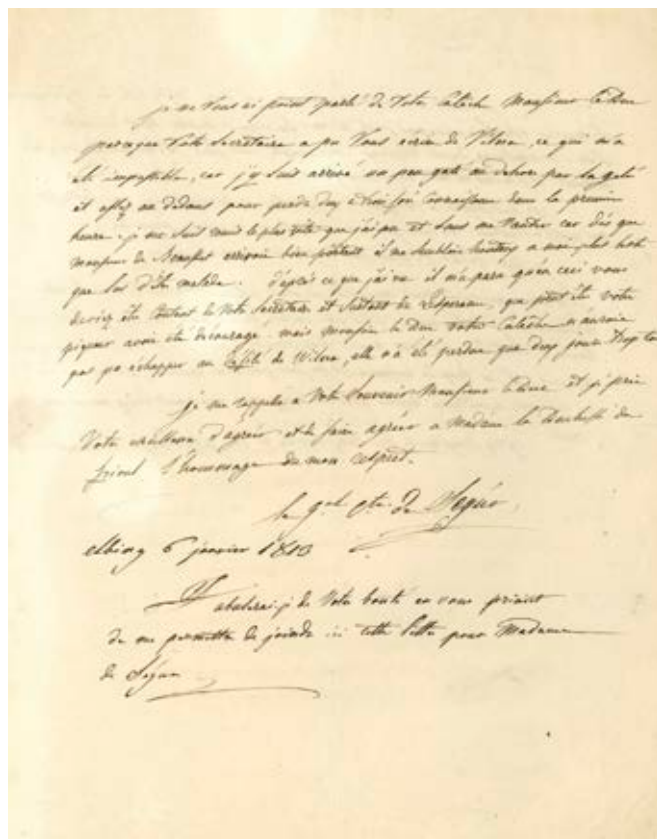 je ne vous ai point parlé de votre calèche Monsieur le Duc
parceque votre secrétaire a pu vous écrire de Vilna, ce qui m'a
été impossible, car j'y suis arrivé un peu gelé au dehors par la gelée
et assez au dedans pour perdre connaissance dans la première
heure. je me suis remis le plus vite que j'ai pu et sans me vanter car dès que
monsieur de Beausset arrivoit bien portant il me sembloit honteux a moi plus
que lui d'être malade. d'après ce que j'ai vu il m'a paru qu'en ceci vous
deviez être content de votre secrétaire et surtout de L'esperance, que peut être votre
piqueur avoit été découragé. mais monsieur le Duc votre calèche n'auroit
pas pu échapper au défilé de Wilna, elle n'a été perdue que deux jours trop tot
je me rappelle a votre souvenir Monsieur le Duc et je prie
votre excellence d'agréer et de faire agréer a Madame la Duchesse de
frioul l'hommage de mon respect.
le gal cte. de Ségur
elbing 6 janvier 1813
abuserai-je de votre bonté en vous priant
de me permettre de joindre ici cette lettre pour Madame
de Ségur